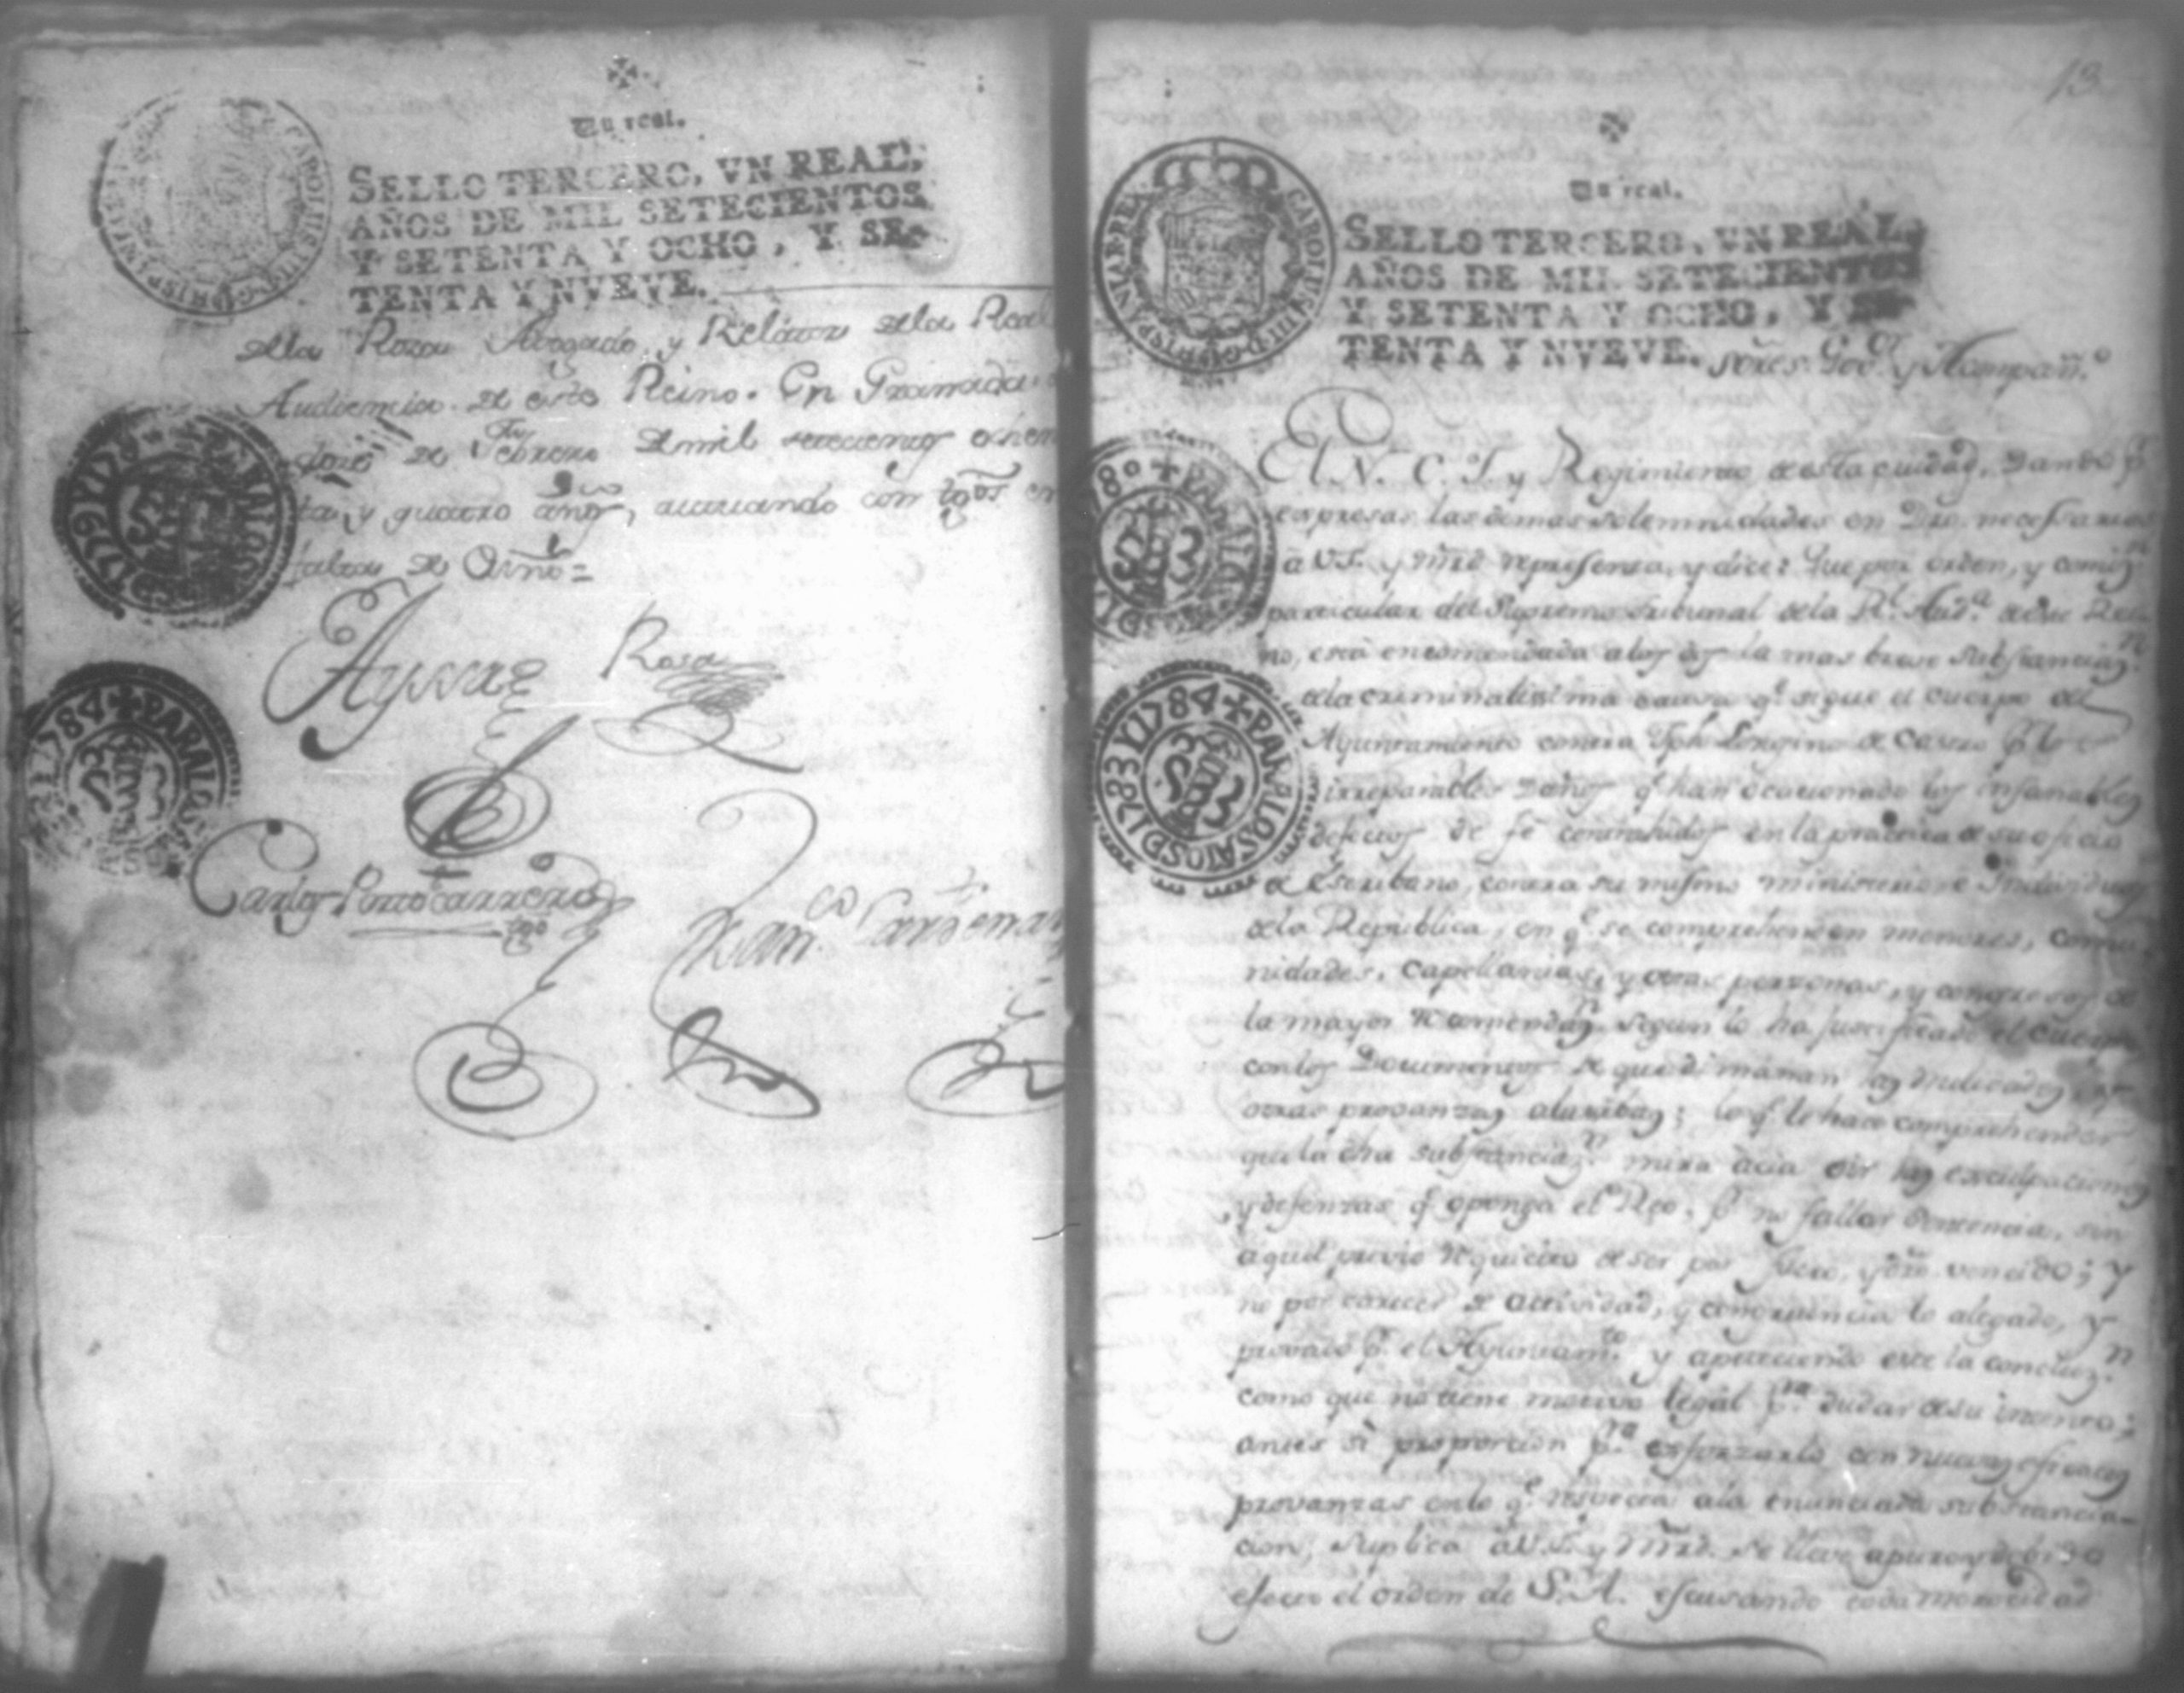 Un real.
SELLO TERCERO, VN REAL,
AÑOS DE MIL SETECIENTOS
Y SETENTA Y OCHO, Y SE-
TENTA Y NVEVE.
dela Rosa Abogado, y Relator dela Real
Audiencia de este Reino. En Granada
doze de Febrero de mil setecientos ochen
ta, y quatro años, actuando con tgos en
falta de Esno=
Ayssa Rosa
Carlos Portocarrero
tgo
Franco Cardenas
PARA LOS AÑOS D 1783 Y 1784
13
Un real.
CAROLUS III D G HISPANIAR REX
SELLO TERCERO, VN REAL,
AÑOS DE MIL SETECIENTOS
Y SETENTA Y OCHO, Y SE-
TENTA Y NVEVE. Sores Gor y Acompañdo
PARA LOS AÑOS D 1783 Y 1784
El N. C. J. y Regimiento de esta ciudad, dando pr
expresas las demas solemnidades en Dro necessarias
a VS. y Mrd representa, y dice: Que por orden, y comisn
particular del Supremo Tribunal dela Rl Auda de este Rei
no, está encomendada a los dos la mas breve substanciazn
dela criminalissima causa qe sigue el cuerpo del
Ayuntamiento contra Jph Longino de Castro pr los
irreparables daños qe han ocacionado los insanables
defectos de fe contrahidos en la practica de su oficio
de Escribano, contra su mismo ministerio e Individuos
dela Republica, en qe se comprehenden menores, comu
nidades, capellanias, y otras perzonas, y congresos de
la mayor recomendazn segun lo ha justificado el cuerpo
con los Documentos de que dimanan las indicadas
otras provanzas ; lo qe le hace comprehender
que la dha substanciazn mira acia oir las exculpaciones
y defenzas qe oponga el Reo, pr no fallar sentencia, sin
aquel previo requicito de ser por fuero, y dro vencido; y
no por carecer de actividad, y congruencia lo alegado, y
provado pr el Ayuntamto y apeteciendo este la concluzn
como que no tiene motivo legal pra dudar de su intento;
antes si proporcion pra esforzarlo con nuevas eficaces
provanzas en lo qe respecta ala enunciada substancia-
cion, suplica a VS. y Mrd. se lleve a puro y debido
efecto el orden de S.A. escusando toda morocidad